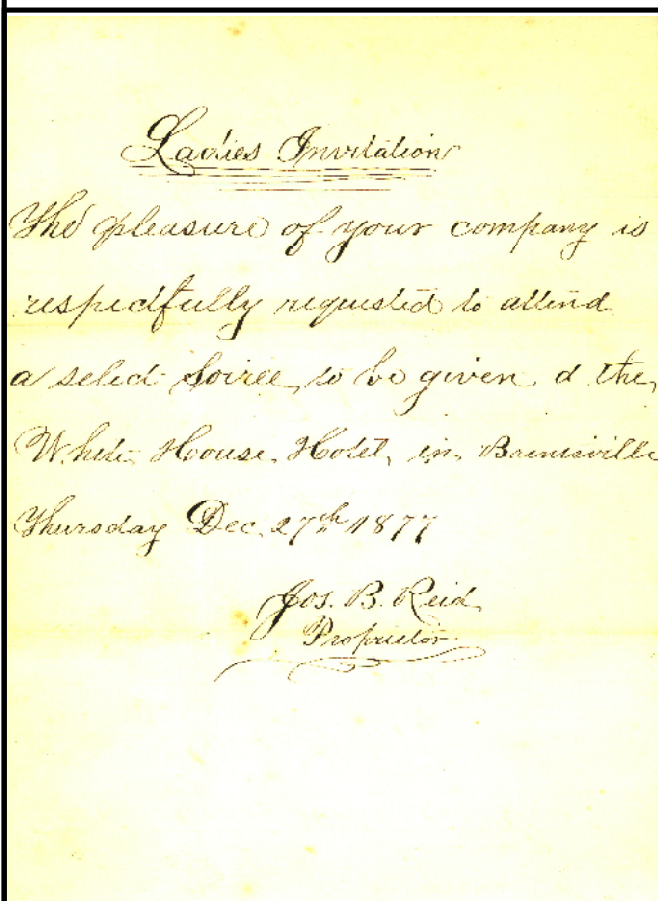 Ladies Invitation
The pleasure of your company is
respectfully requested to attend
a select Soiree, to be given at the
White House Hotel, in Brentsville
Thursday Dec. 27th 1877
Jos. B. Reid
Proprietor